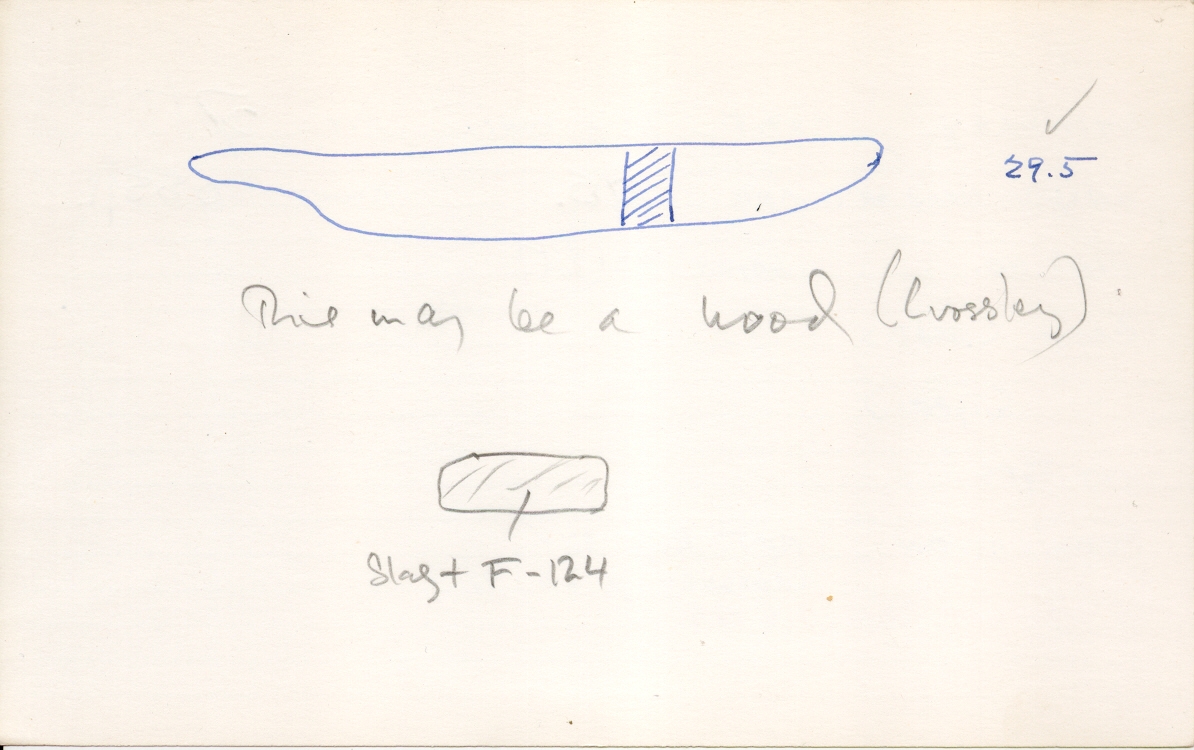 29.5
This may be a hood (Crossley).
Slag + F-124